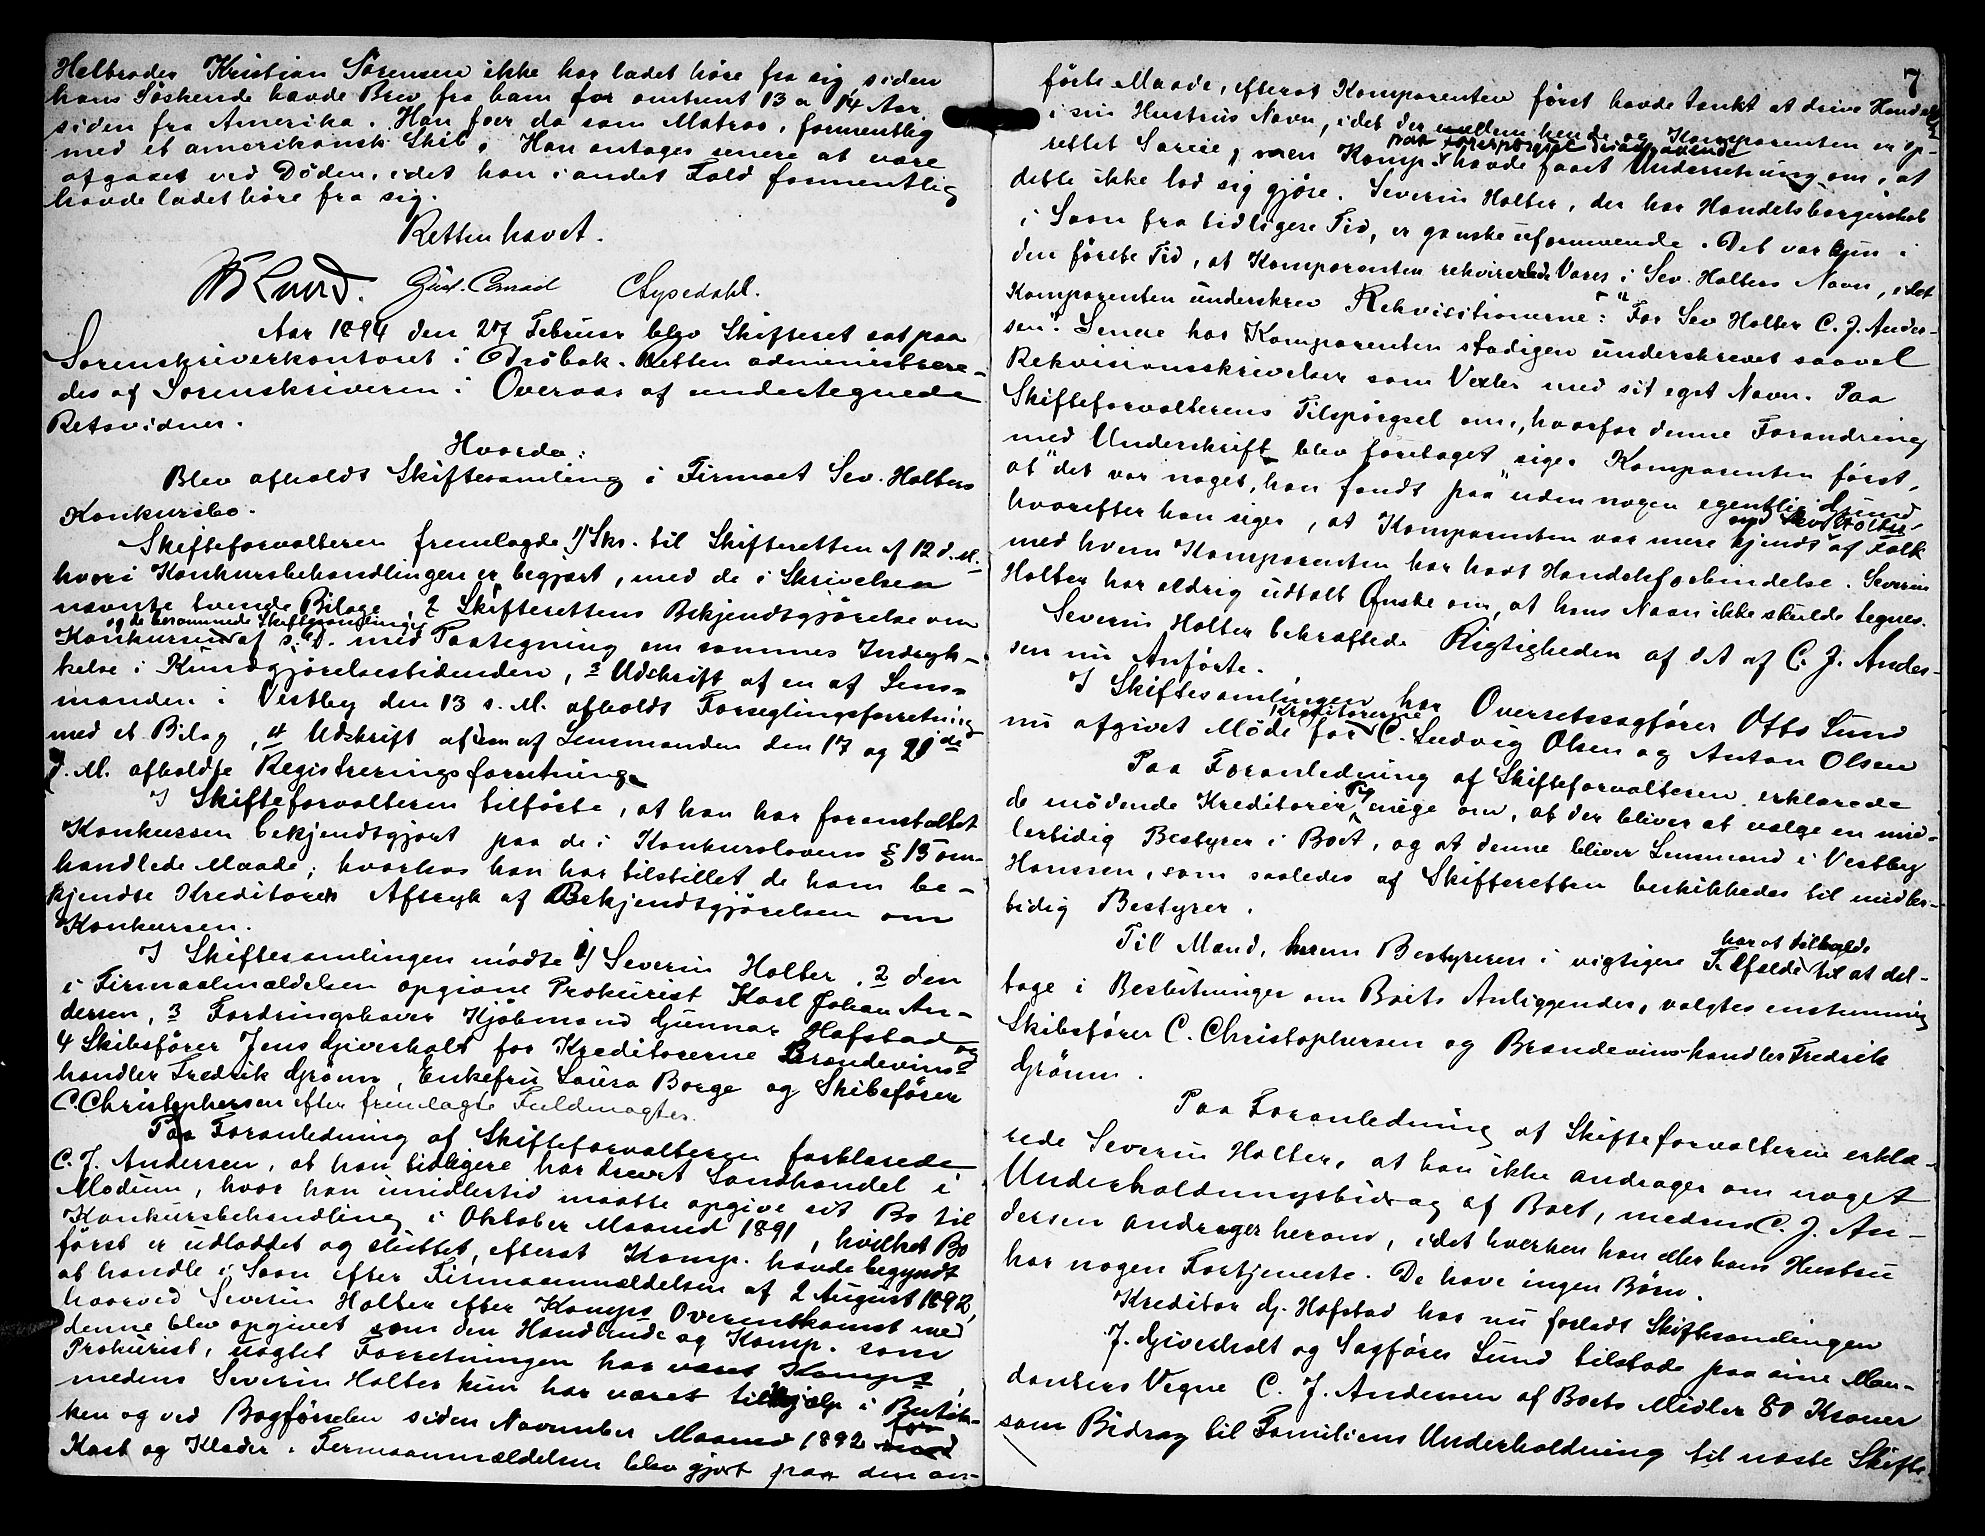 Helbroder Kristian Sørensen ikke har ladet høre fra sig, siden
hans Søskende havde Brev fra ham for omtrent 13 a 14 Aar
siden fra Amerika. Han foer da som Matros, formentlig
med et amerikansk Skib. Han antages senere at være
afgaaet ved Døden, idet han i andet Fald formentlig
havde ladet høre fra sig.
Retten hævet.
Gust. Conrad C Lysedahl.
Aar 1894 den 27 Februar blev Skifteret sat paa
Sorenskriverkontoret i Drøbak. Retten administrere-
des af Sorenskriveren i Overvær af undertegnede
Retsvidner.
Hvorda:
Blev afholdt Skiftesamling i Firmaet Sev. Holters
Konkursbo.
Skifteforvalteren fremlagde 1) Skr. til Skifteretten af 12 d. M.
hvori Konkursbehandlingen er begjært, med de i Skrivelsen
nævnte tvende Bilage, 2 Skifterettens Bekjendtgjørelse om
og de berammede Skiftesamlinger
Konkursen af s. D. med Paategning om sammes Indryk-
kelse i Kundgjørelsestidenden, 3 Udskrift af en af Lens-
manden i Vestby den 13 s. M. afholdt Forseglingsforretning
med et Bilag, 4 Udskrift af en af Lensmanden den 17 og 21de
d. M. afholdte Registreringsforretning.
I Skifteforvalteren tilførte, at han har foranstaltet
Konkursen bekjendtgjort paa de i Konkurslovens § 15 om-
handlede Maade, hvorhos han har tilstillet de ham be-
kjendte Kreditorer Aftryk af Bekjendtgjørelsen om
Konkursen.
I Skiftesamlingen mødte 1) Severin Holter, 2 den
i Firmaanmældelsen opgivne Prokurist Karl Johan An-
dersen, 3 Fordringshaver Kjøbmand Gunnar Hofstad og
4 Skibsfører Jens Givesholt for Kreditorerne Brændevins-
handler Fredrik Grønn, Enkefru Laura Borge og Skibsfører
C. Christophersen efter fremlagte Fuldmagter.
Paa Foranledning af Skifteforvalteren forklarede
C. J. Andersen, at han tidligere har drevet Landhandel i
Modum, hvor han imidlertid maatte opgive sit Bo til
Konkursbehandling i Oktober Maaned 1891, hvilket Bo
først er udloddet og sluttet, efterat Komp. havde begyndt
at handle i Soon efter Firmaanmældelsen af 2 August 1892,
hvorved Severin Holter efter Komps Overenskomst med
denne blev opgivet som den Handlende og Komp. som
Prokurist, uagtet Forretningen har været Komps,
medens Severin Holter kun har været tilhjælp i Butik-
ken og ved Bogførselen siden November Maaned 1892 for
Kost og Klæder. Firmaanmældelsen blev gjort paa den an-
7
førte Maade, efterat Komparenten først havde tænkt at drive Handel
i sin Hustrus Navn, idet der mellem hende og Komparenten er op-
rettet Særeie, men Komp. havde faaet Underretning om, at
dette ikke lod sig gjøre. Severin Holter, der har Handelsborgerskab
i Soon fra tidligere Tid, er ganske uformuende. Det var kun i
den første Tid, at Komparenten rekvirerede Varer i Sev. Holters Navn, idet
Komparenten underskrev Rekvisitionerne: "For Sev Holter C. J. Ander-
sen". Senere har Komparenten stadigen underskrevet saavel
Rekvisionsskrivelser som Vexler med sit eget Navn. Paa
Skifteforvalterens Tilspørgsel om, hvorfor denne Forandring
med Underskrift blev foretaget siger Komparenten først,
at "det var noget, han fandt paa" uden nogen egentlig Grund,
hvorefter han siger, at Komparenten var mere kjendt af Folk
end Sev. Holter
med hvem Komparenten har havt Handelsforbindelse. Severin
Holter har aldrig udtalt Ønske om, at hans Navn ikke skulde tegnes.
Severin Holter bekræftede Rigtigheden af det af C. J. Ander-
sen nu Anførte.
I Skiftesamlingen har Overretssagfører Otto Lund
nu afgivet Møde for Kreditorerne C. Ludvig Olsen og Anton Olsen
Paa Foranledning af Skifteforvalteren erklærede
de mødende Kreditorer sig enige om, at der bliver at vælge en mid-
lertidig Bestyrer i Boet, og at denne bliver Lensmand i Vestby
Hanssen, som saaledes af Skifteretten beskikkedes til midler-
tidig Bestyrer.
Til Mænd, hvem Bestyreren i vigtigere Tilfælde har at tilkalde til at del-
tage i Beslutninger om Boets Anliggender, valgtes enstemmig
Skibsfører C. Christophersen og Brændevinshandler Fredrik
Grønn.
Paa Foranledning af Skifteforvalteren erklæ-
rede Severin Holter, at han ikke andrager om noget
Underholdningsbidrag af Boet, medens C. J. An-
dersen andrager herom, idet hverken han eller hans Hustru
har nogen Fortjeneste. De have ingen Børn.
Kreditor G. Hofstad har nu forladt Skiftesamlingen
J. Givesholt og Sagfører Lund tilstode paa sine Man-
danters Vegne C. J. Andersen af Boets Midler 80 Kroner
som Bidrag til Familiens Underholdning til næste Skifte